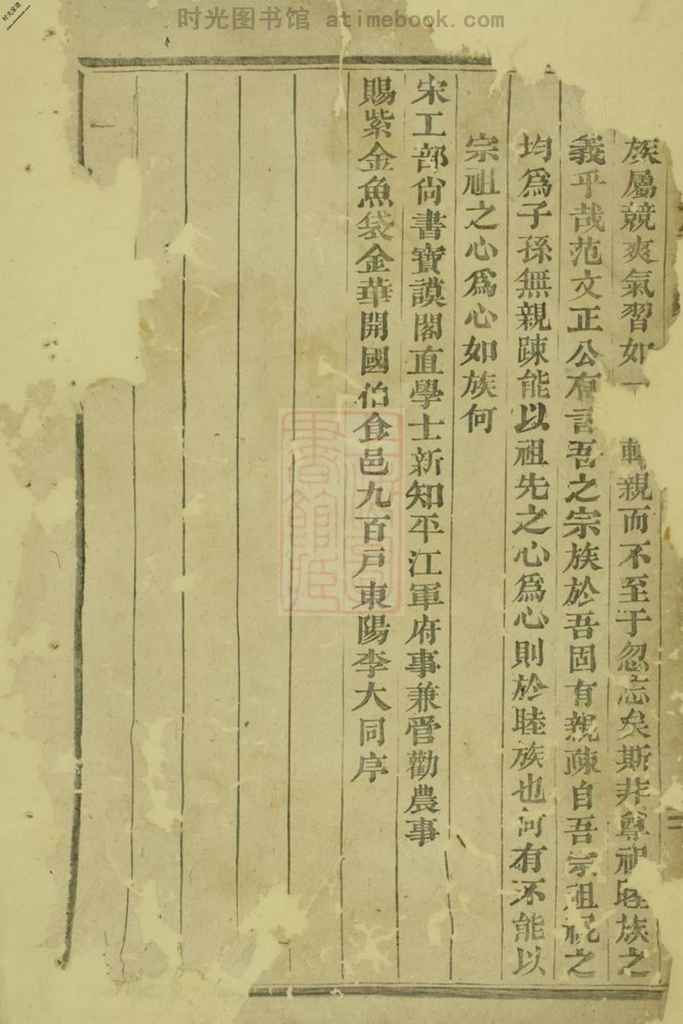 时光图书馆 atimebook.com
族屬競爽氣習如一 親而不至于忽忘矣斯非尊祖睦族之
義乎哉范文正公有言吾之宗族於吾固有親疎自吾宗祖視之
均爲子孫無親踈能以祖先之心爲心則於睦族也何有不能以
宗祖之心爲心如族何
宋工部尙書寶謨閣直學士新知平江軍府事兼管勸農事
賜紫金魚袋金華開國伯食邑九百戸東陽李大同序